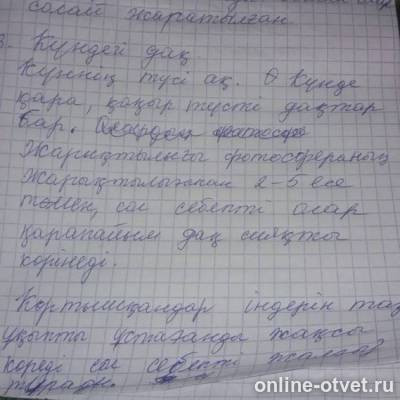 солай жаратылған
3. Күндей дақ.
Күннің түсі ақ. Ө Күнде
қара, қоңыр түсті дақтар
бар.
Жарықтылығы фотосфераның
жарақтылығынан 2-5 есе
төмен, сол себепті олар
қарапайым дақ сияқты
көрінеді.
Кортышқандар індерін таз
ұқыпты ұстағанды жақсы
көреді сол себепті
тұрады.
online-otvet.ru